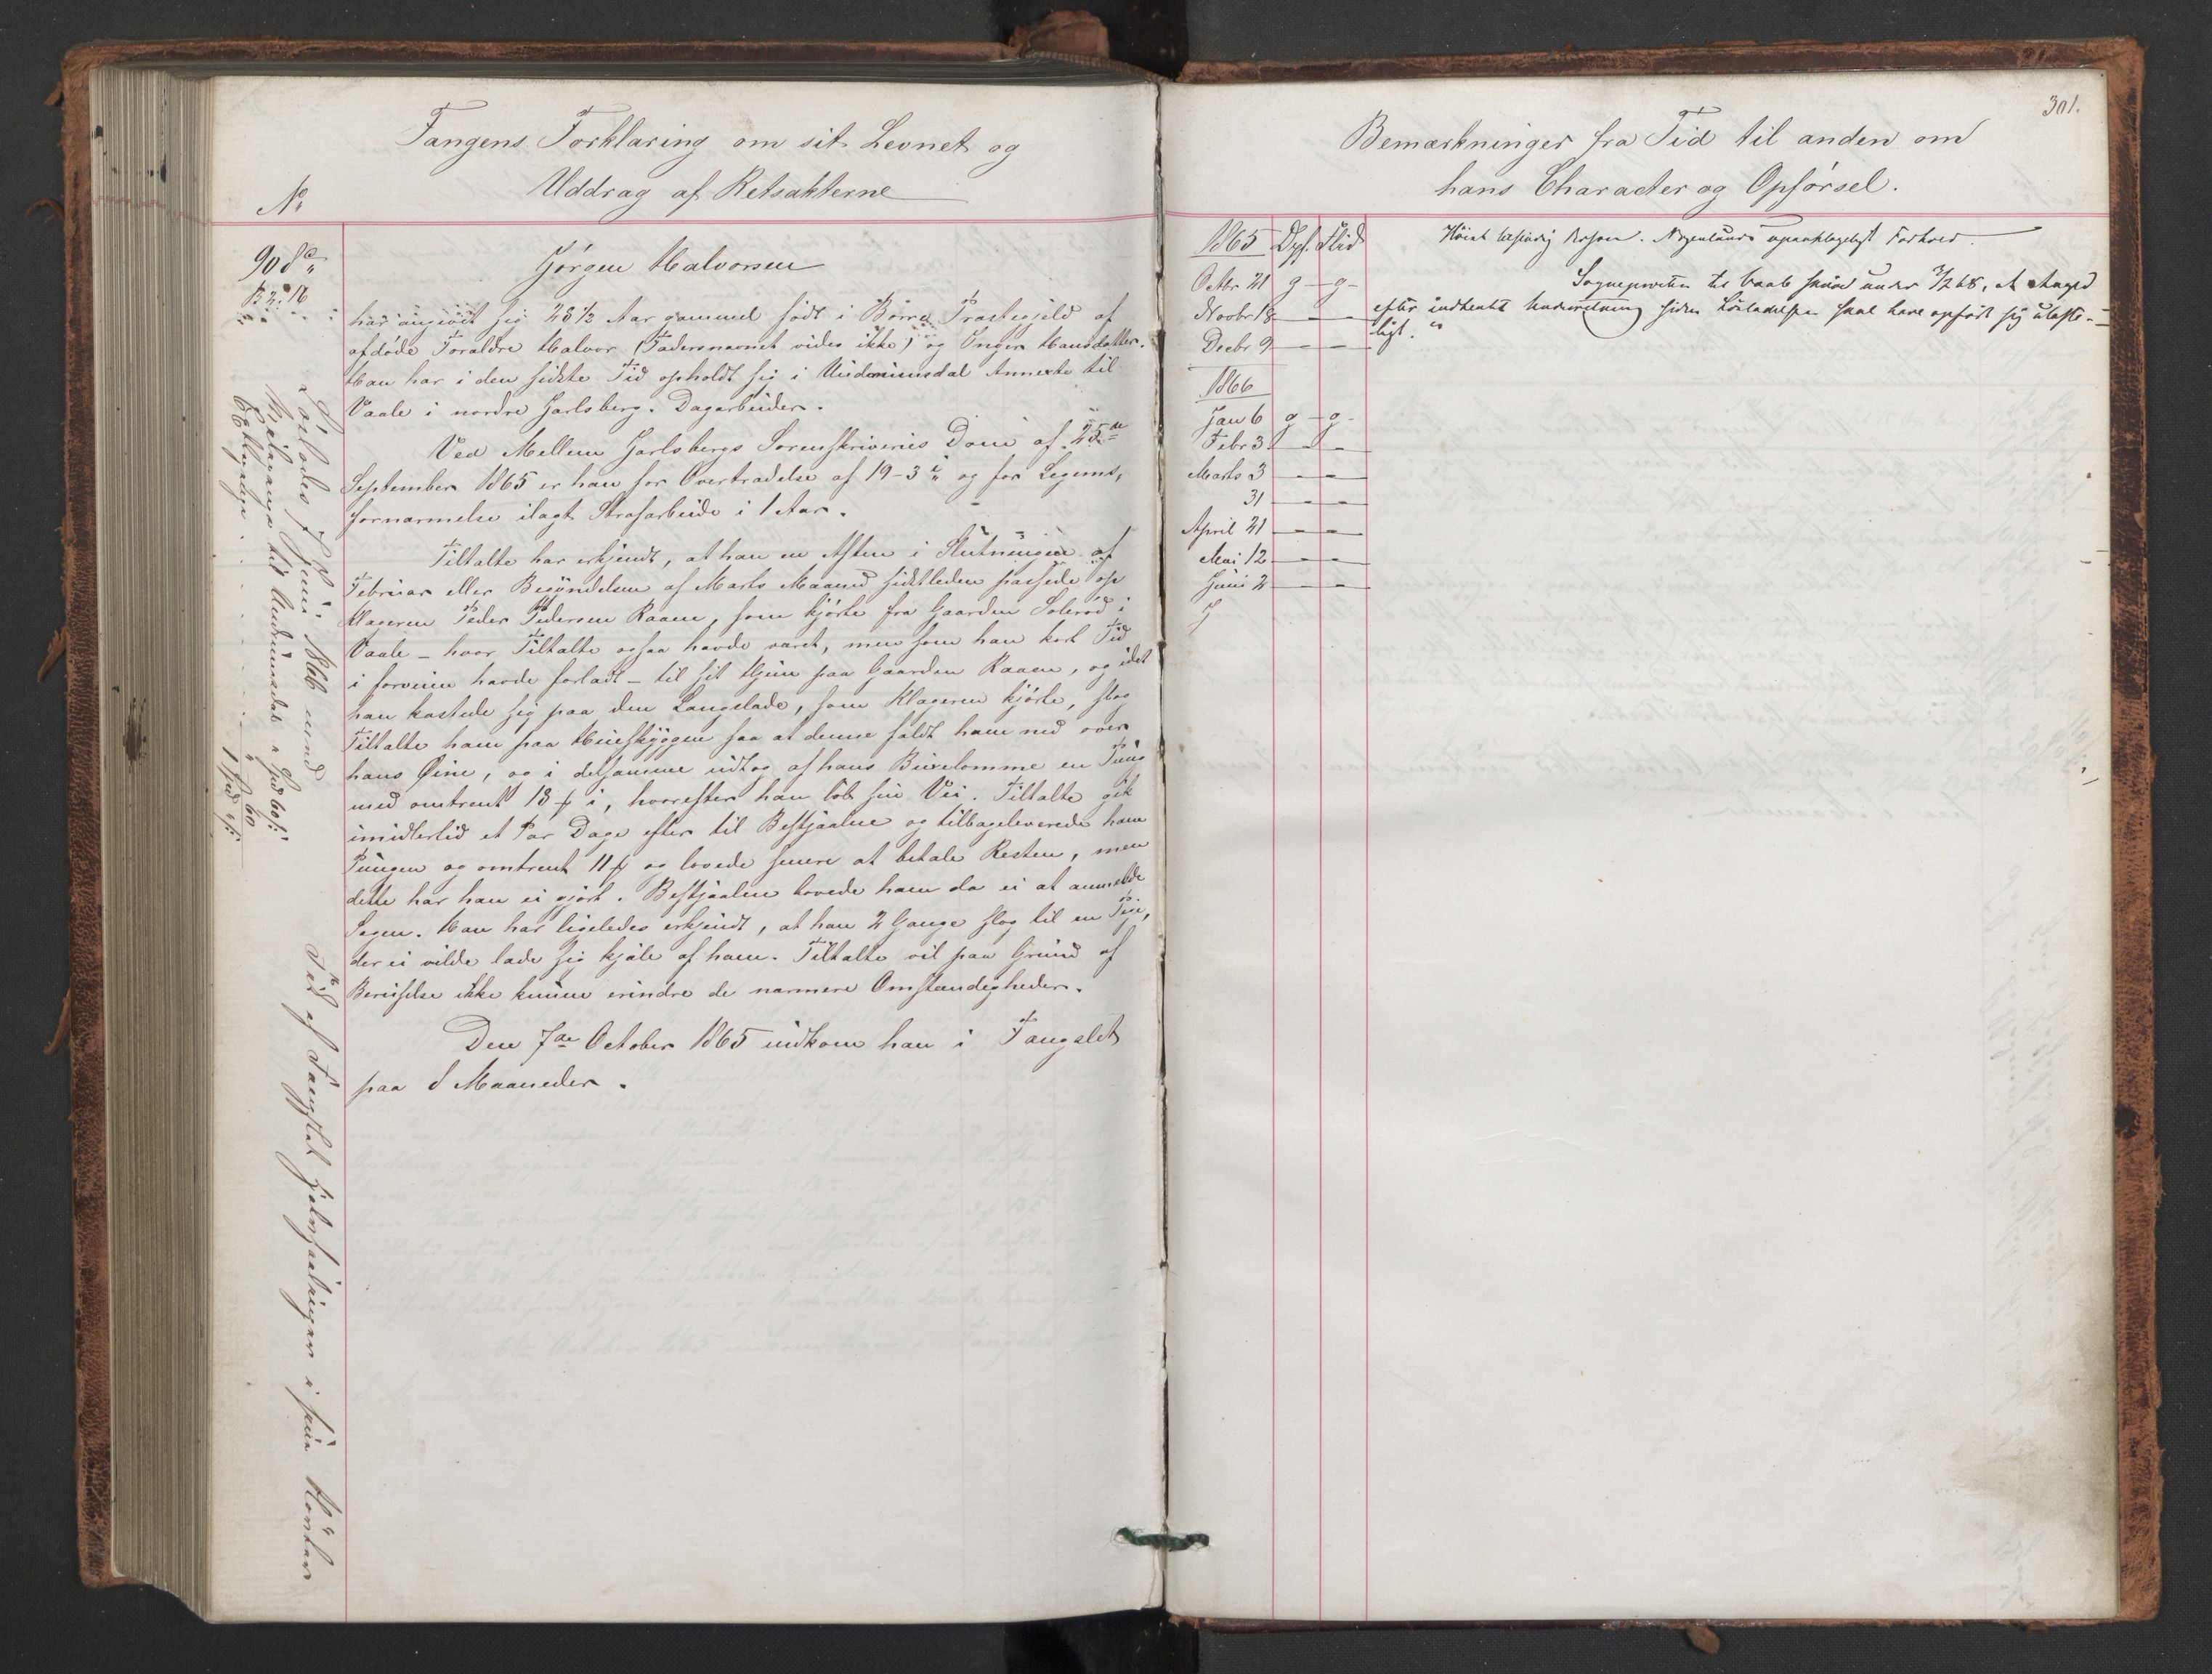 Fangens Forklaring om sit Levnet og
Uddrag af Retsakterne
No
908
B 2. 16
Jørgen Halvorsen
har angivet sig 28 1/2 Aar gammel født i Borre Præstegjeld af
afdøde Forældre Halvor (Fadersnavnet vides ikke) og Inger Hansdatter.
Han har i den sidste Tid opholdt sig i Undrumsdal Annexe til
Vaale i nordre Jarlsberg. Dagarbeider.
Ved Mellem Jarlsbergs Sorenskriveries Dom af 25de
September 1865 er han for Overtrædelse af 19-3 og for Legems,
fornærmelse ilagt Strafarbeide i 1 Aar.
Tiltalte har erkjendt, at han en Aften i Slutningen af
Februar eller Begyndelsen af Marts Maaned sidstleden passede op
Klageren Peder Pedersen Raaen, som kjørte fra Gaarden Solerød i
Vaale - hvor Tiltalte ogsaa havde været, men som han kort Tid
i forveien havde forladt - til sit Hjem paa Gaarden Raaen, og idet
han kastede sig paa den Langslæde, som Klageren kjørte, slog
Tiltalte ham paa Hueskyggen saa at denne faldt ham ned over
hans Øine, og i detsamme udtog af hans Buxelomme en Pung
med omtrent 13 ß i, hvorefter han løb sin Vei. Tiltalte gik
imidlertid et Par Dage efter til Bestjaalne og tilbageleverede ham
Pungen og omtrent 11 ß og lovede senere at betale Resten, men
dette har han ei gjort. Bestjaalne lovede ham da ei at anmelde
Sagen. Han har ligeledes erkjendt, at han 2 Gange slog til en Pige,
der ei vilde lade sig kjæle af ham. Tiltalte vil paa Grund af
Beruselse ikke kunne erindre de nærmere Omstændigheder.
Den 7de October 1865 indkom han i Fangslet
paa 8 Maaneder.
Løslodes 7 Juni 1866 med
til Undrumsdal
60
1 Spd
Tid af Fængslet
301.
Bemærkninger fra Tid til anden om
hans Character og Opførsel.
1865 Opf. Flid
Octbr 21 g - g -
Novbr 18 - -
Decbr 9 - -
1866
Jan 6 g - g -
Febr 3 - -
Marts 3 - -
31 - -
April 21 - -
Mai 12 - -
Juni 2 - -
Høist letsindig Person. Nogenlunde upaaklageligt Forhold.
Sognepresten til Vaale skrev under 3/2 68, at Fangen
efter indhentet Underretning siden Løsladelsen skal have opført sig ulaste-
ligt.